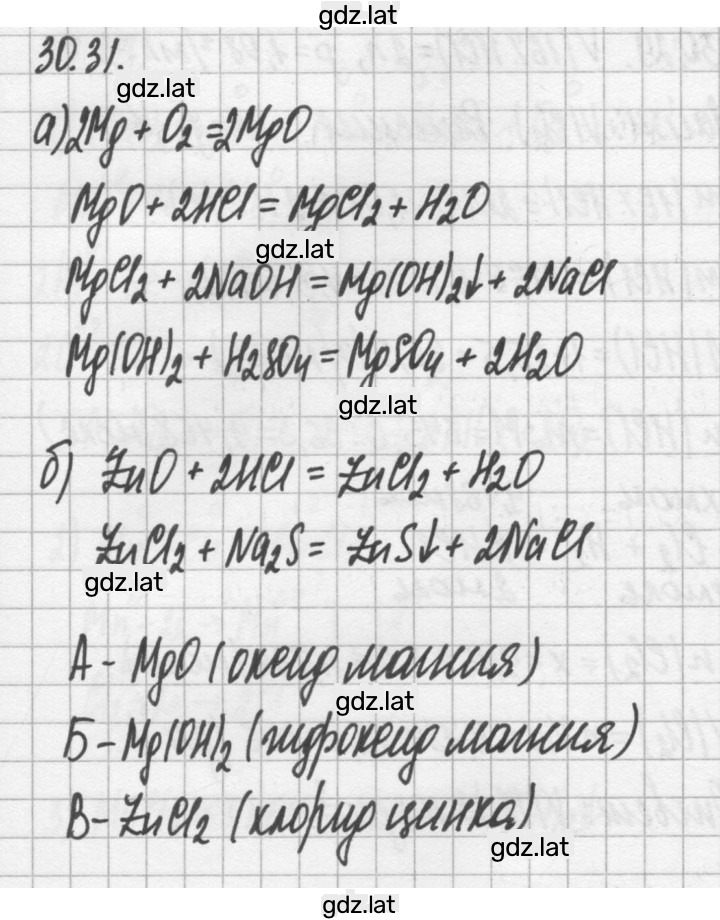 gdz.lat
30.31.
gdz.lat
а) 2Mg + O₂ = 2MgO
MgO + 2HCl = MgCl₂ + H₂O
gdz.lat
MgCl₂ + 2NaOH = Mg(OH)₂↓ + 2NaCl
Mg(OH)₂ + H₂SO₄ = MgSO₄ + 2H₂O
gdz.lat
б) ZnO + 2HCl = ZnCl₂ + H₂O
ZnCl₂ + Na₂S = ZnS↓ + 2NaCl
gdz.lat
А - MgO (оксид магния)
gdz.lat
Б - Mg(OH)₂ (гидроксид магния)
В - ZnCl₂ (хлорид цинка)
gdz.lat
gdz.lat